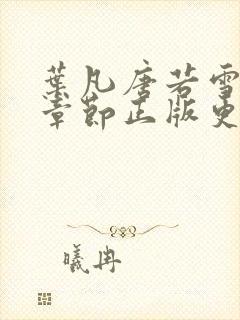 葉凡唐若雪
章節正版更
曦冉